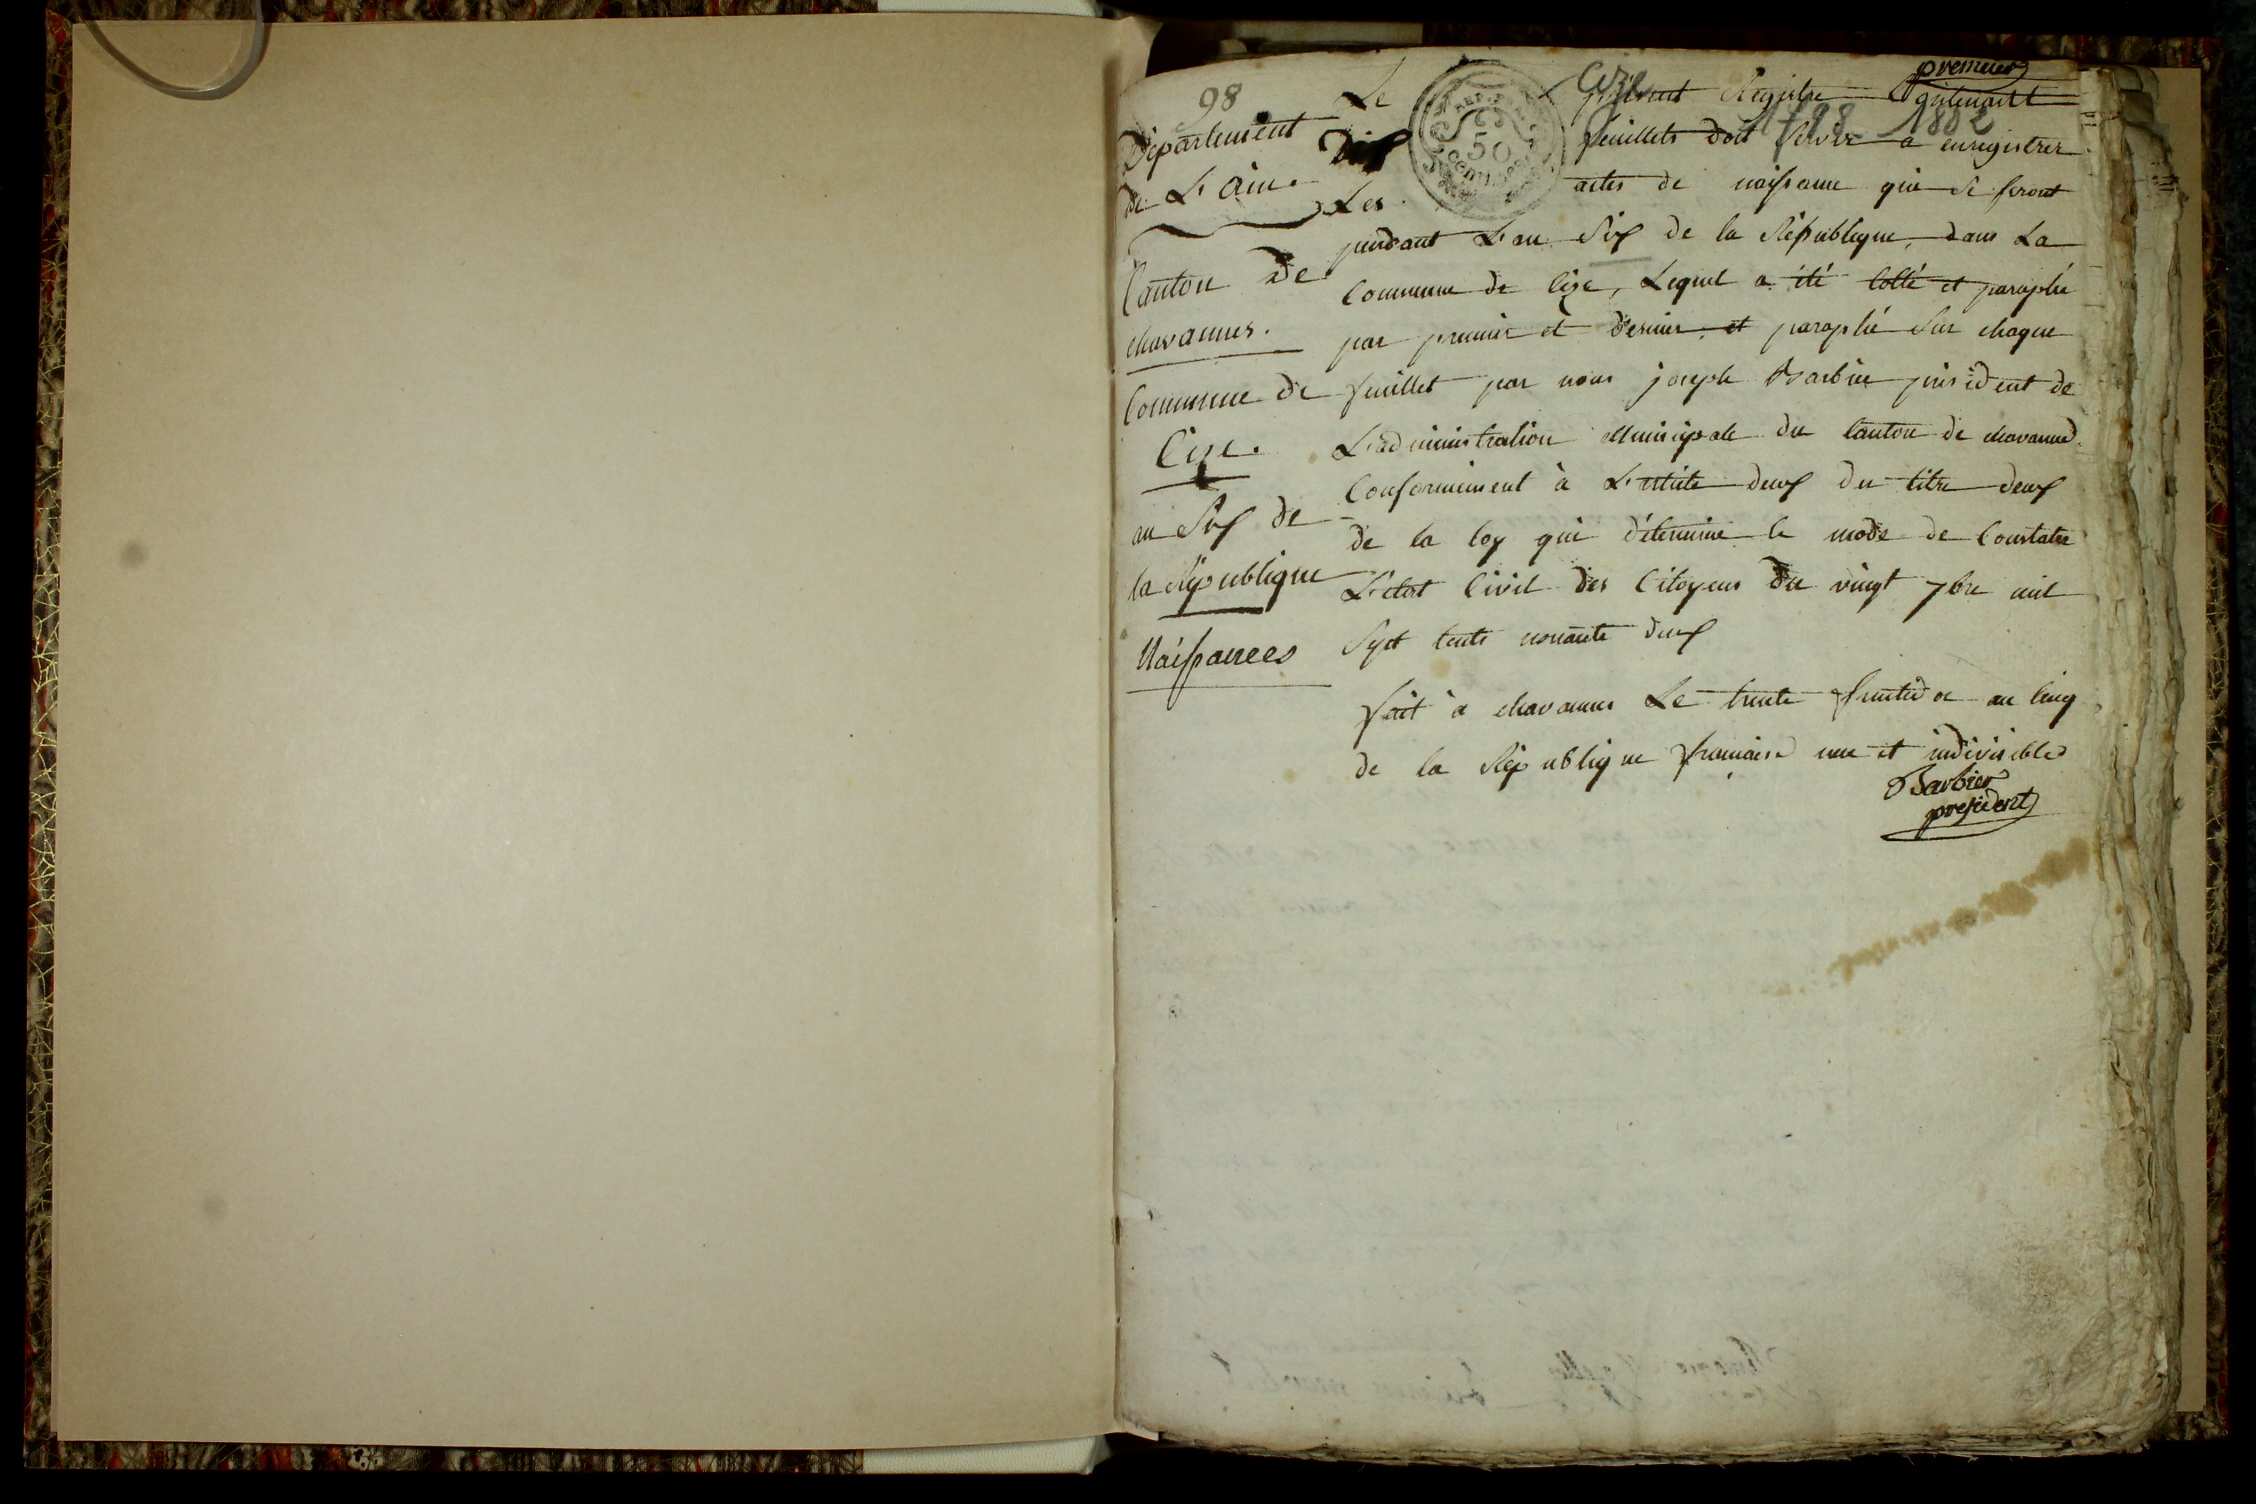 98
Cize
premier
1798 - 1802
REP. FRA.
50
CENTIMES
Département
de L'ain.
Canton de
chavannes.
Commune de
Cize.
an Six de
la République
Naissances
Le présent Registre Contenant
Dix feuillets doit servir a enregistrer
Les actes de naissance qui se feront
pendant L'an Six de la République, dans La
Commune de Cize, Lequel a été Collé et paraphé
par premier et dernier et paraphé sur chaque
feuillet par nous joseph Barbier président de
L'administration Municipale du Canton de chavannes
Conformement à L'article deux du titre deux
de la loy qui détermine le mode de Constater
L'état Civil des Citoyens du vingt 7bre mil
Sept cents nonante deux
fait à chavannes Le trente fructidor an Cinq
de la République francaise une et indivisible
Barbier
president